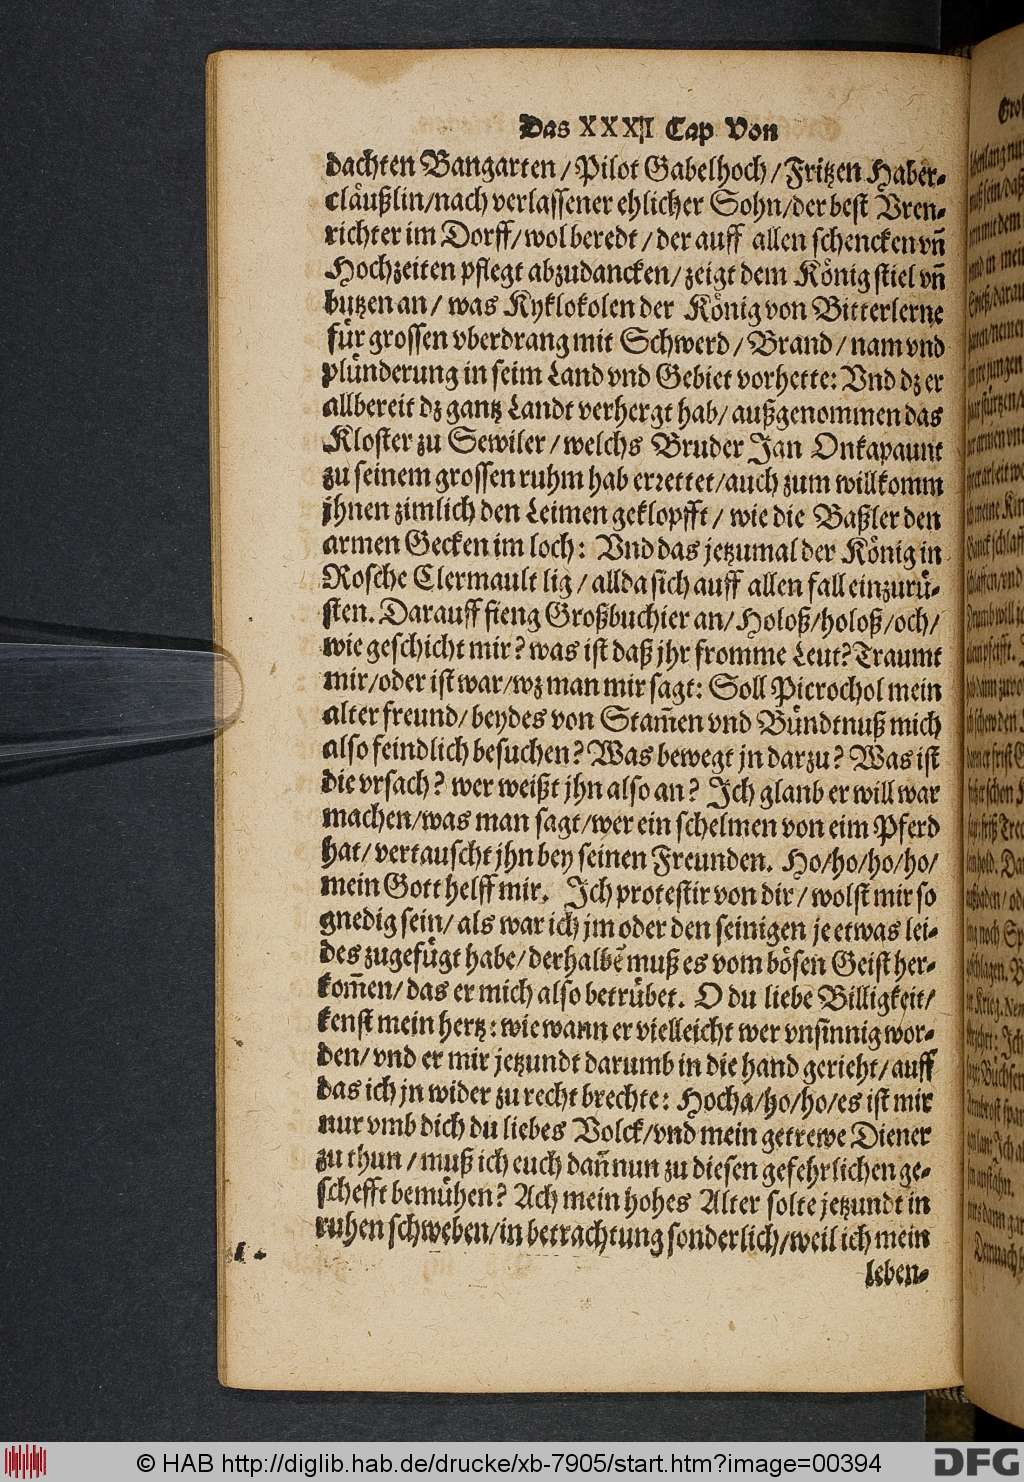 Das XXXII Cap Von
dachten Bangarten / Pilot Gabelhoch / Fritzen Haber-
cläußlin/nach verlassener ehlicher Sohn/der best Vren-
richter im Dorff/wol beredt / der auff allen schencken vñ
Hochzeiten pflegt abzudancken/zeigt dem König stiel vñ
butzen an/ was Kyklokolen der König von Bitterlerne
für grossen vberdrang mit Schwerd / Brand / nam vnd
plünderung in seim Land vnd Gebiet vorhette: Vnd dz er
allbereit dz gantz Landt verhergt hab/ außgenommen das
Kloster zu Sewiler / welchs Bruder Jan Onkapaunt
zu seinem grossen ruhm hab errettet/auch zum willkomm
jhnen zimlich den Leimen geklopfft / wie die Baßler den
armen Gecken im loch: Vnd das jetzumal der König in
Rosche Clermault lig / allda sich auff allen fall einzurü-
sten. Darauff fieng Großbuchier an/ Holoß/holoß/och/
wie geschicht mir? was ist daß jhr fromme Leut? Traumt
mir/oder ist war/wz man mir sagt: Soll Picrochol mein
alter freund/ beydes von Stam̃en vnd Bündtnuß mich
also feindlich besuchen? Was bewegt jn darzu? Was ist
die vrsach? wer weißt jhn also an? Ich glaub er will war
machen/was man sagt/wer ein schelmen von eim Pferd
hat/ vertauscht jhn bey seinen Freunden. Ho/ho/ho/ho/
mein Gott helff mir. Ich protestir von dir / wolst mir so
gnedig sein/ als war ich jm oder den seinigen je etwas lei-
des zugefügt habe/ derhalbẽ muß es vom bösen Geist her-
kom̃en/ das er mich also betrübet. O du liebe Billigkeit/
kenst mein hertz: wie wann er vielleicht wer vnsinnig wor-
den/ vnd er mir jetzundt darumb in die hand gerieht/ auff
das ich jn wider zu recht brechte: Hocha/ho/ho/es ist mir
nur vmb dich du liebes Volck/vnd mein getrewe Diener
zu thun / muß ich euch dañ nun zu diesen gefehrlichen ge-
schefft bemühen? Ach mein hohes Alter solte jetzundt in
ruhen schweben/in betrachtung sonderlich/weil ich mein
leben-
© HAB http://diglib.hab.de/drucke/xb-7905/start.htm?image=00394
DFG